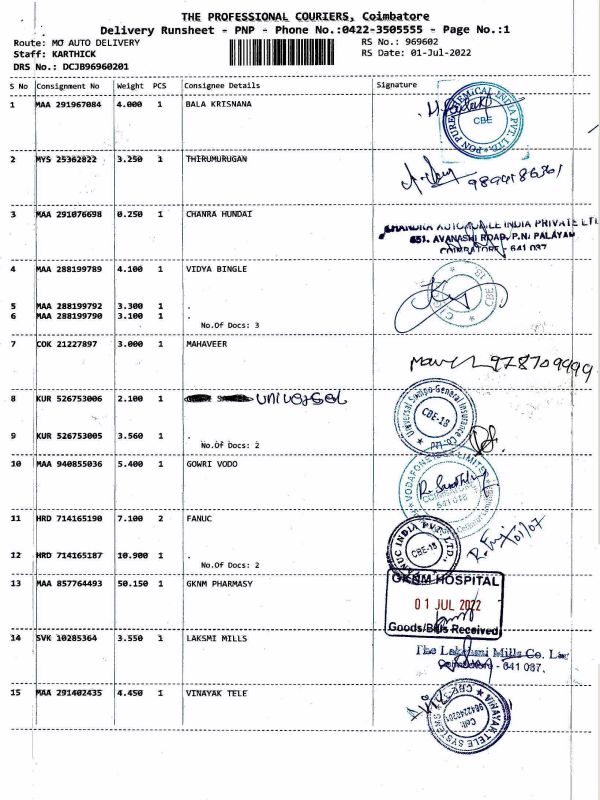 THE PROFESSIONAL COURIERS, Coimbatore
Delivery Runsheet - PNP - Phone No.:0422-3505555 - Page No.:1
Route: MO AUTO DELIVERY RS No.: 969602
Staff: KARTHICK RS Date: 01-Jul-2022
DRS No.: DCJB96960201
S No Consignment No Weight PCS Consignee Details Signature
1 MAA 291967084 4.000 1 BALA KRISNANA
PON PURE CHEMICAL INDIA PVT. LTD. CBE
2 MYS 25362822 3.250 1 THIRUMURUGAN
3 MAA 291076698 0.250 1 CHANRA HUNDAI
CHANDRA AUTOMOBILE INDIA PRIVATE LT
651, AVANASHI ROAD, P.N. PALAYAM
COIMBATORE - 641 037
4 MAA 288199789 4.100 1 VIDYA BINGLE
CBE 18
5 MAA 288199792 3.300 1 .
6 MAA 288199790 3.100 1 .
No.Of Docs: 3
7 COK 21227897 3.000 1 MAHAVEER
978709999
8 KUR 526753006 2.100 1 UNIVERSAL
Universal Sompo General Insurance Co. CBE-18
9 KUR 526753005 3.560 1 .
No.Of Docs: 2
10 MAA 940855036 5.400 1 GOWRI VODO
VODAFONE IDEA LIMITED
COIMBATORE
641 018
11 HRD 714165190 7.100 2 FANUC
FANUC INDIA PVT. LTD. CBE-18
01/07
12 HRD 714165187 10.900 1 .
No.Of Docs: 2
13 MAA 857764493 50.150 1 GKNM PHARMASY
GKNM HOSPITAL
01 JUL 2022
Goods/Bills Received
14 SVK 10285364 3.550 1 LAKSMI MILLS
The Lakshmi Mills Co. Ltd
Coimbatore - 641 037.
15 MAA 291402435 4.450 1 VINAYAK TELE
VINAYAK TELE SYSTEMS
Cell: